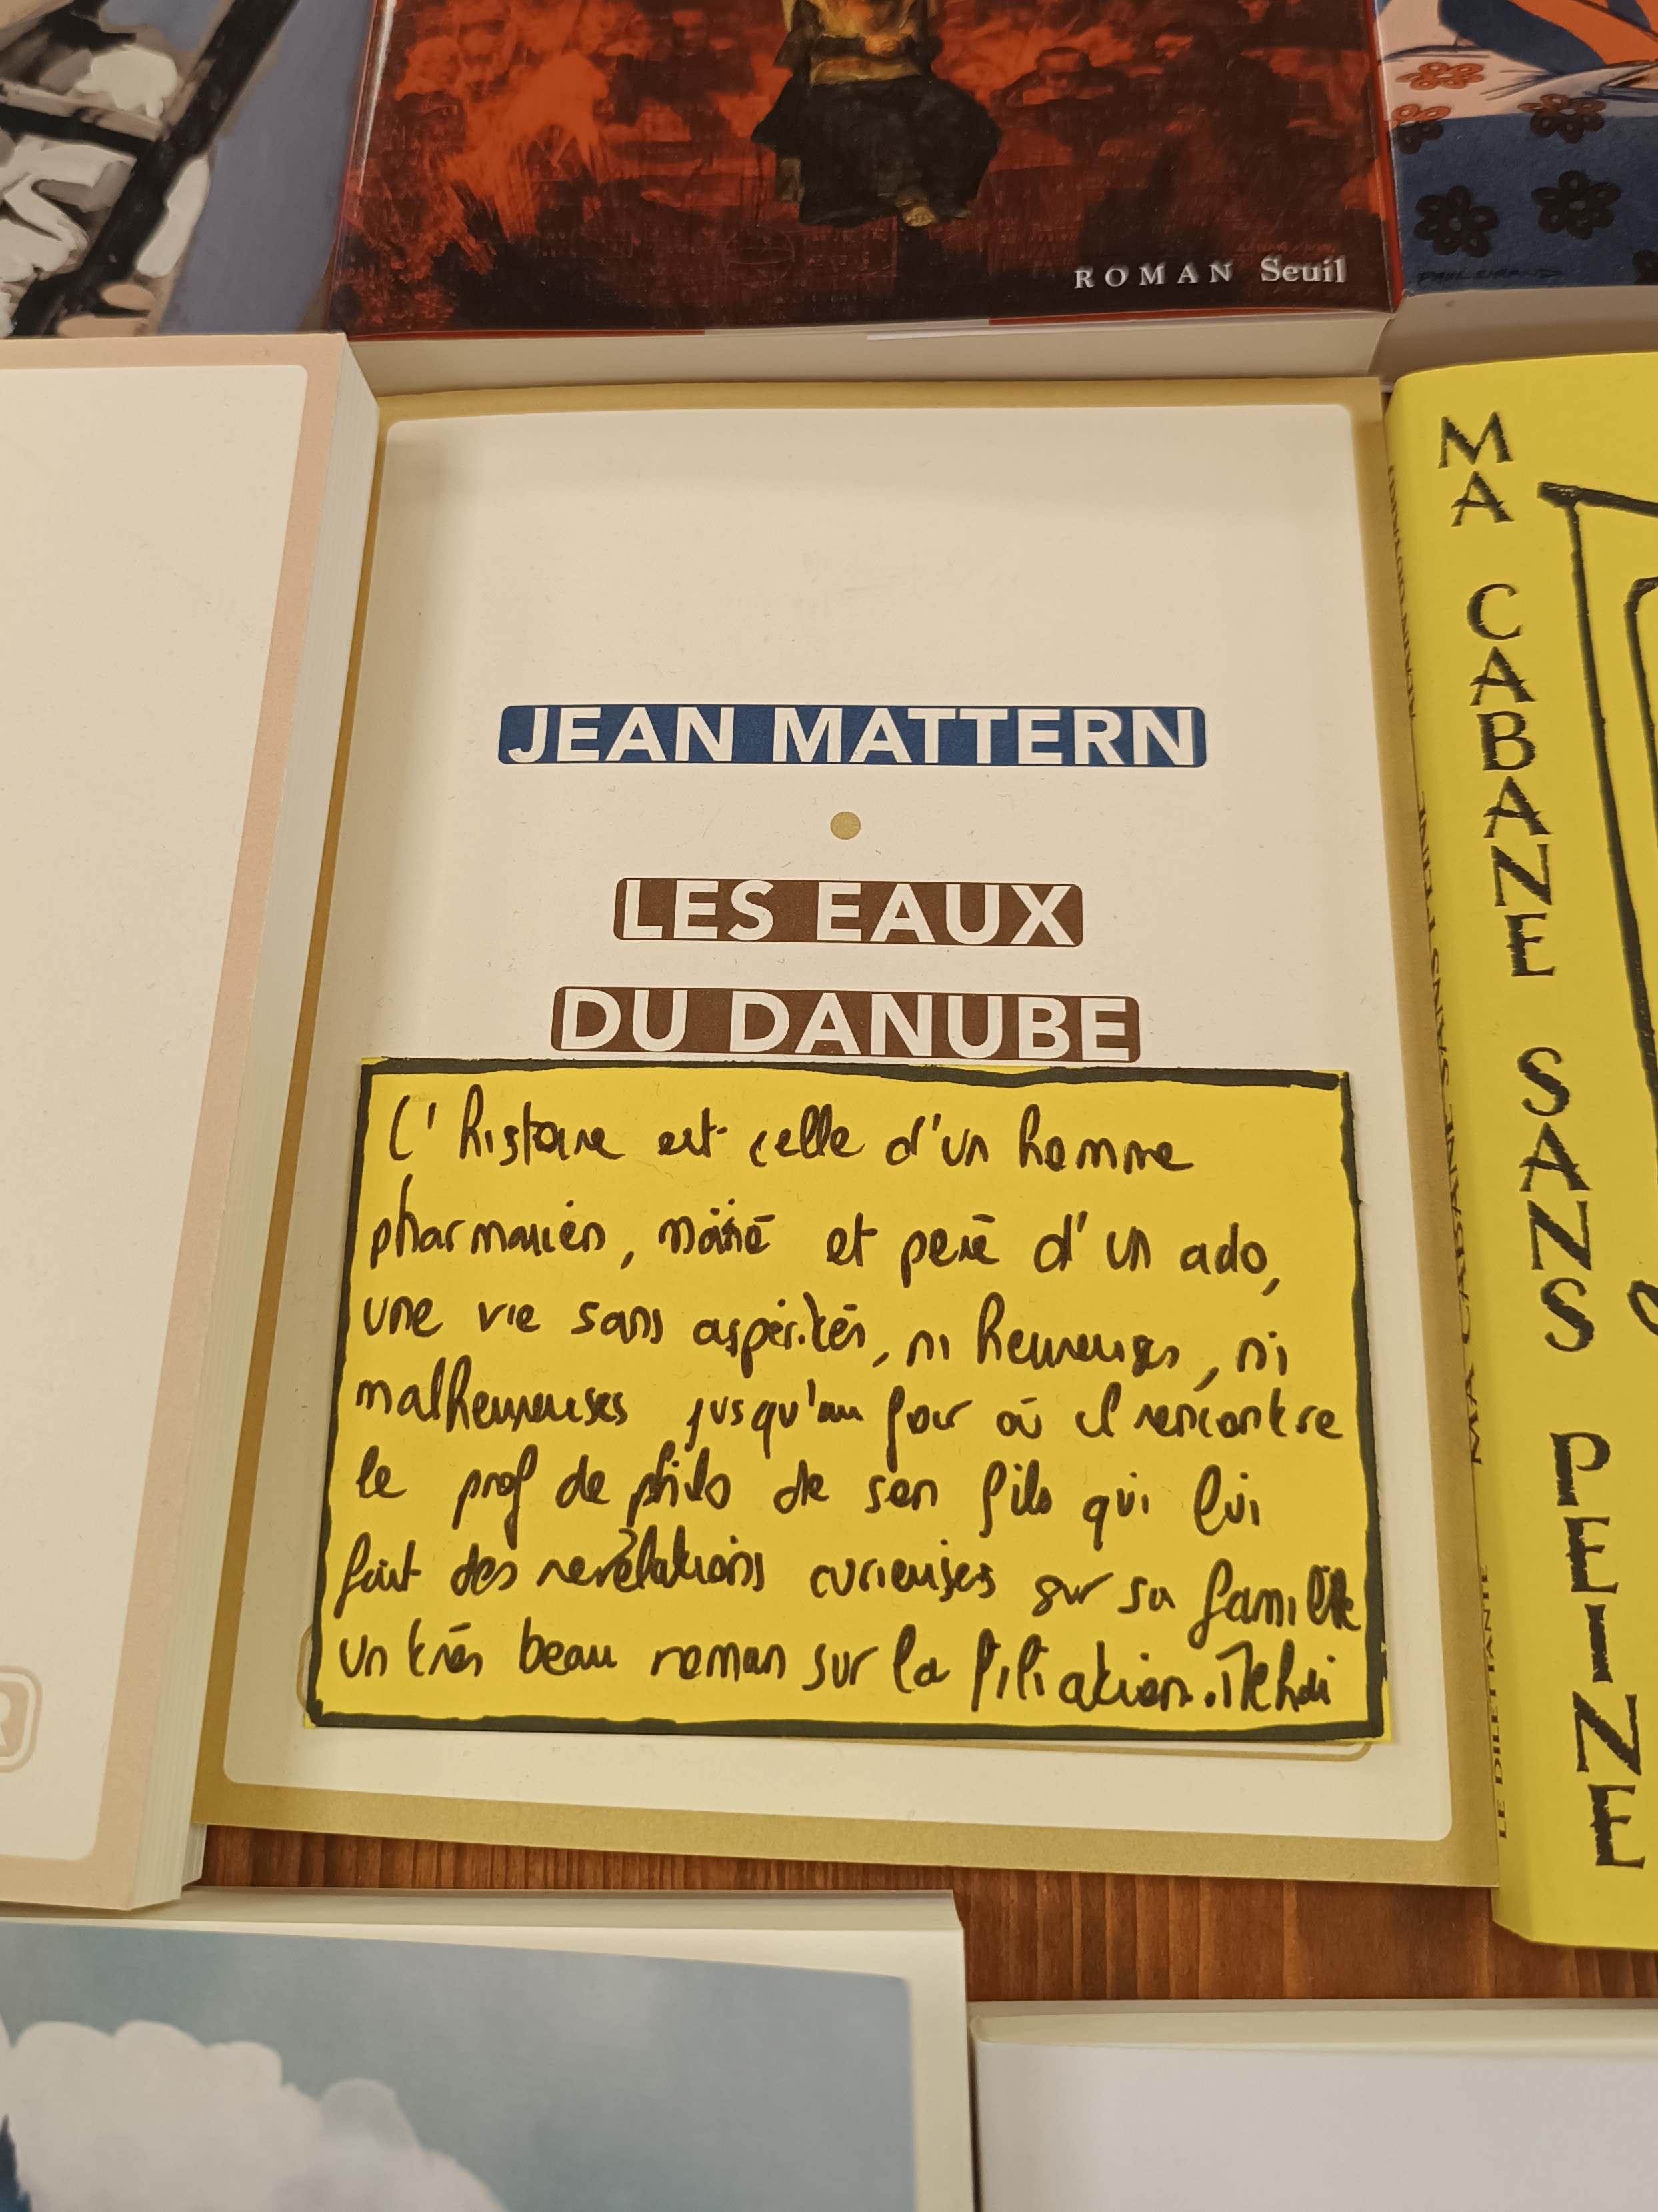 ROMAN Seuil
JEAN MATTERN
LES EAUX
DU DANUBE
L'histoire est celle d'un homme
pharmacien, marié et père d'un ado,
une vie sans aspérités, ni heureuses, ni
malheureuses jusqu'au jour où il rencontre
le prof de philo de son fils qui lui
fait des révélations curieuses sur sa famille
un très beau roman sur la filiation. Mehdi
MA CABANE SANS PEINE
MA CABANE SANS PEINE
LE DILETTANTE